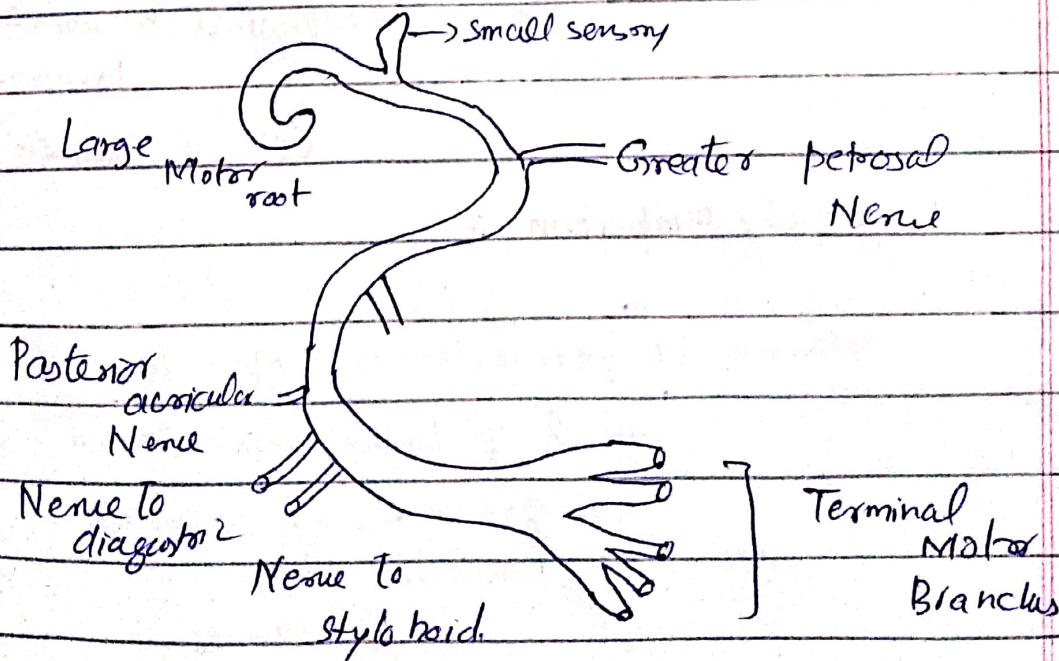 small sensory
Large
Motor
root
Greater petrosal
Nerve
Posterior
auricular
Nerve
Nerve to
diagastri2
Nerve to
stylohoid.
Terminal
Motor
Branches